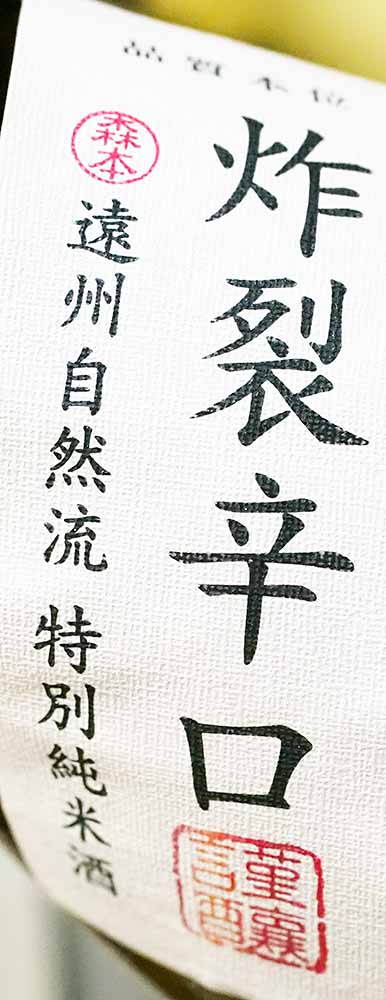 品質本位
炸裂辛口
謹醸
森本
遠州自然流 特別純米酒